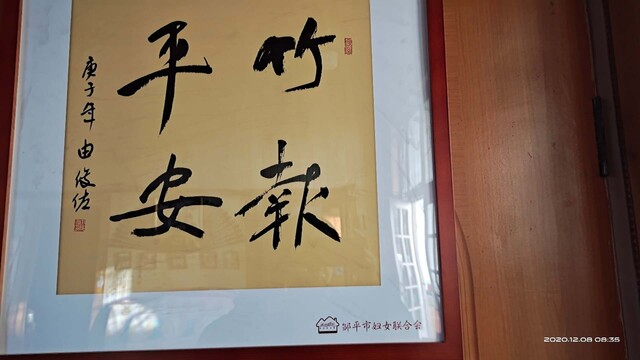 竹報
平安
庚子年 由俊佐
邹平市妇女联合会
2020.12.08 08:35